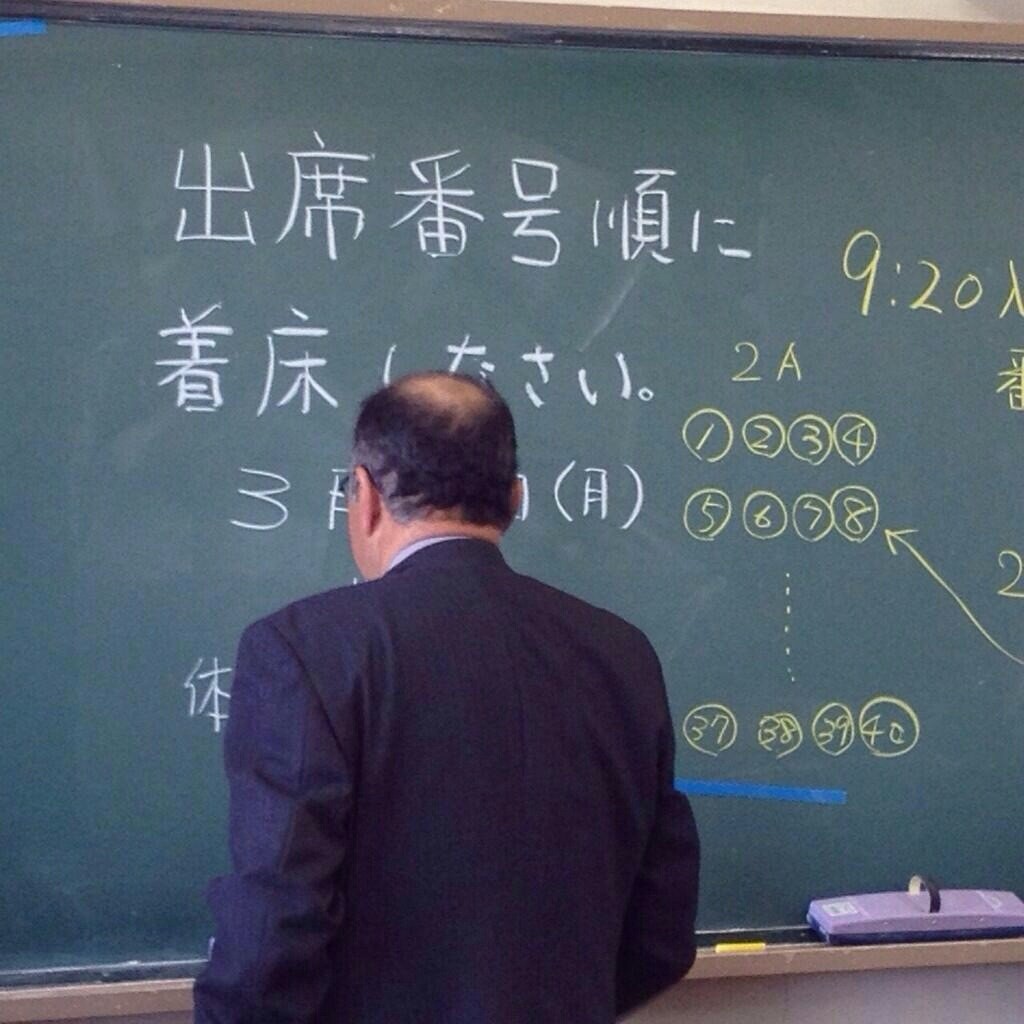 出席番号順に
着床 ださい。
3月 (月)
体
9:20
番
2A
①②③④
⑤⑥⑦⑧
2
㊲㊳㊴㊵